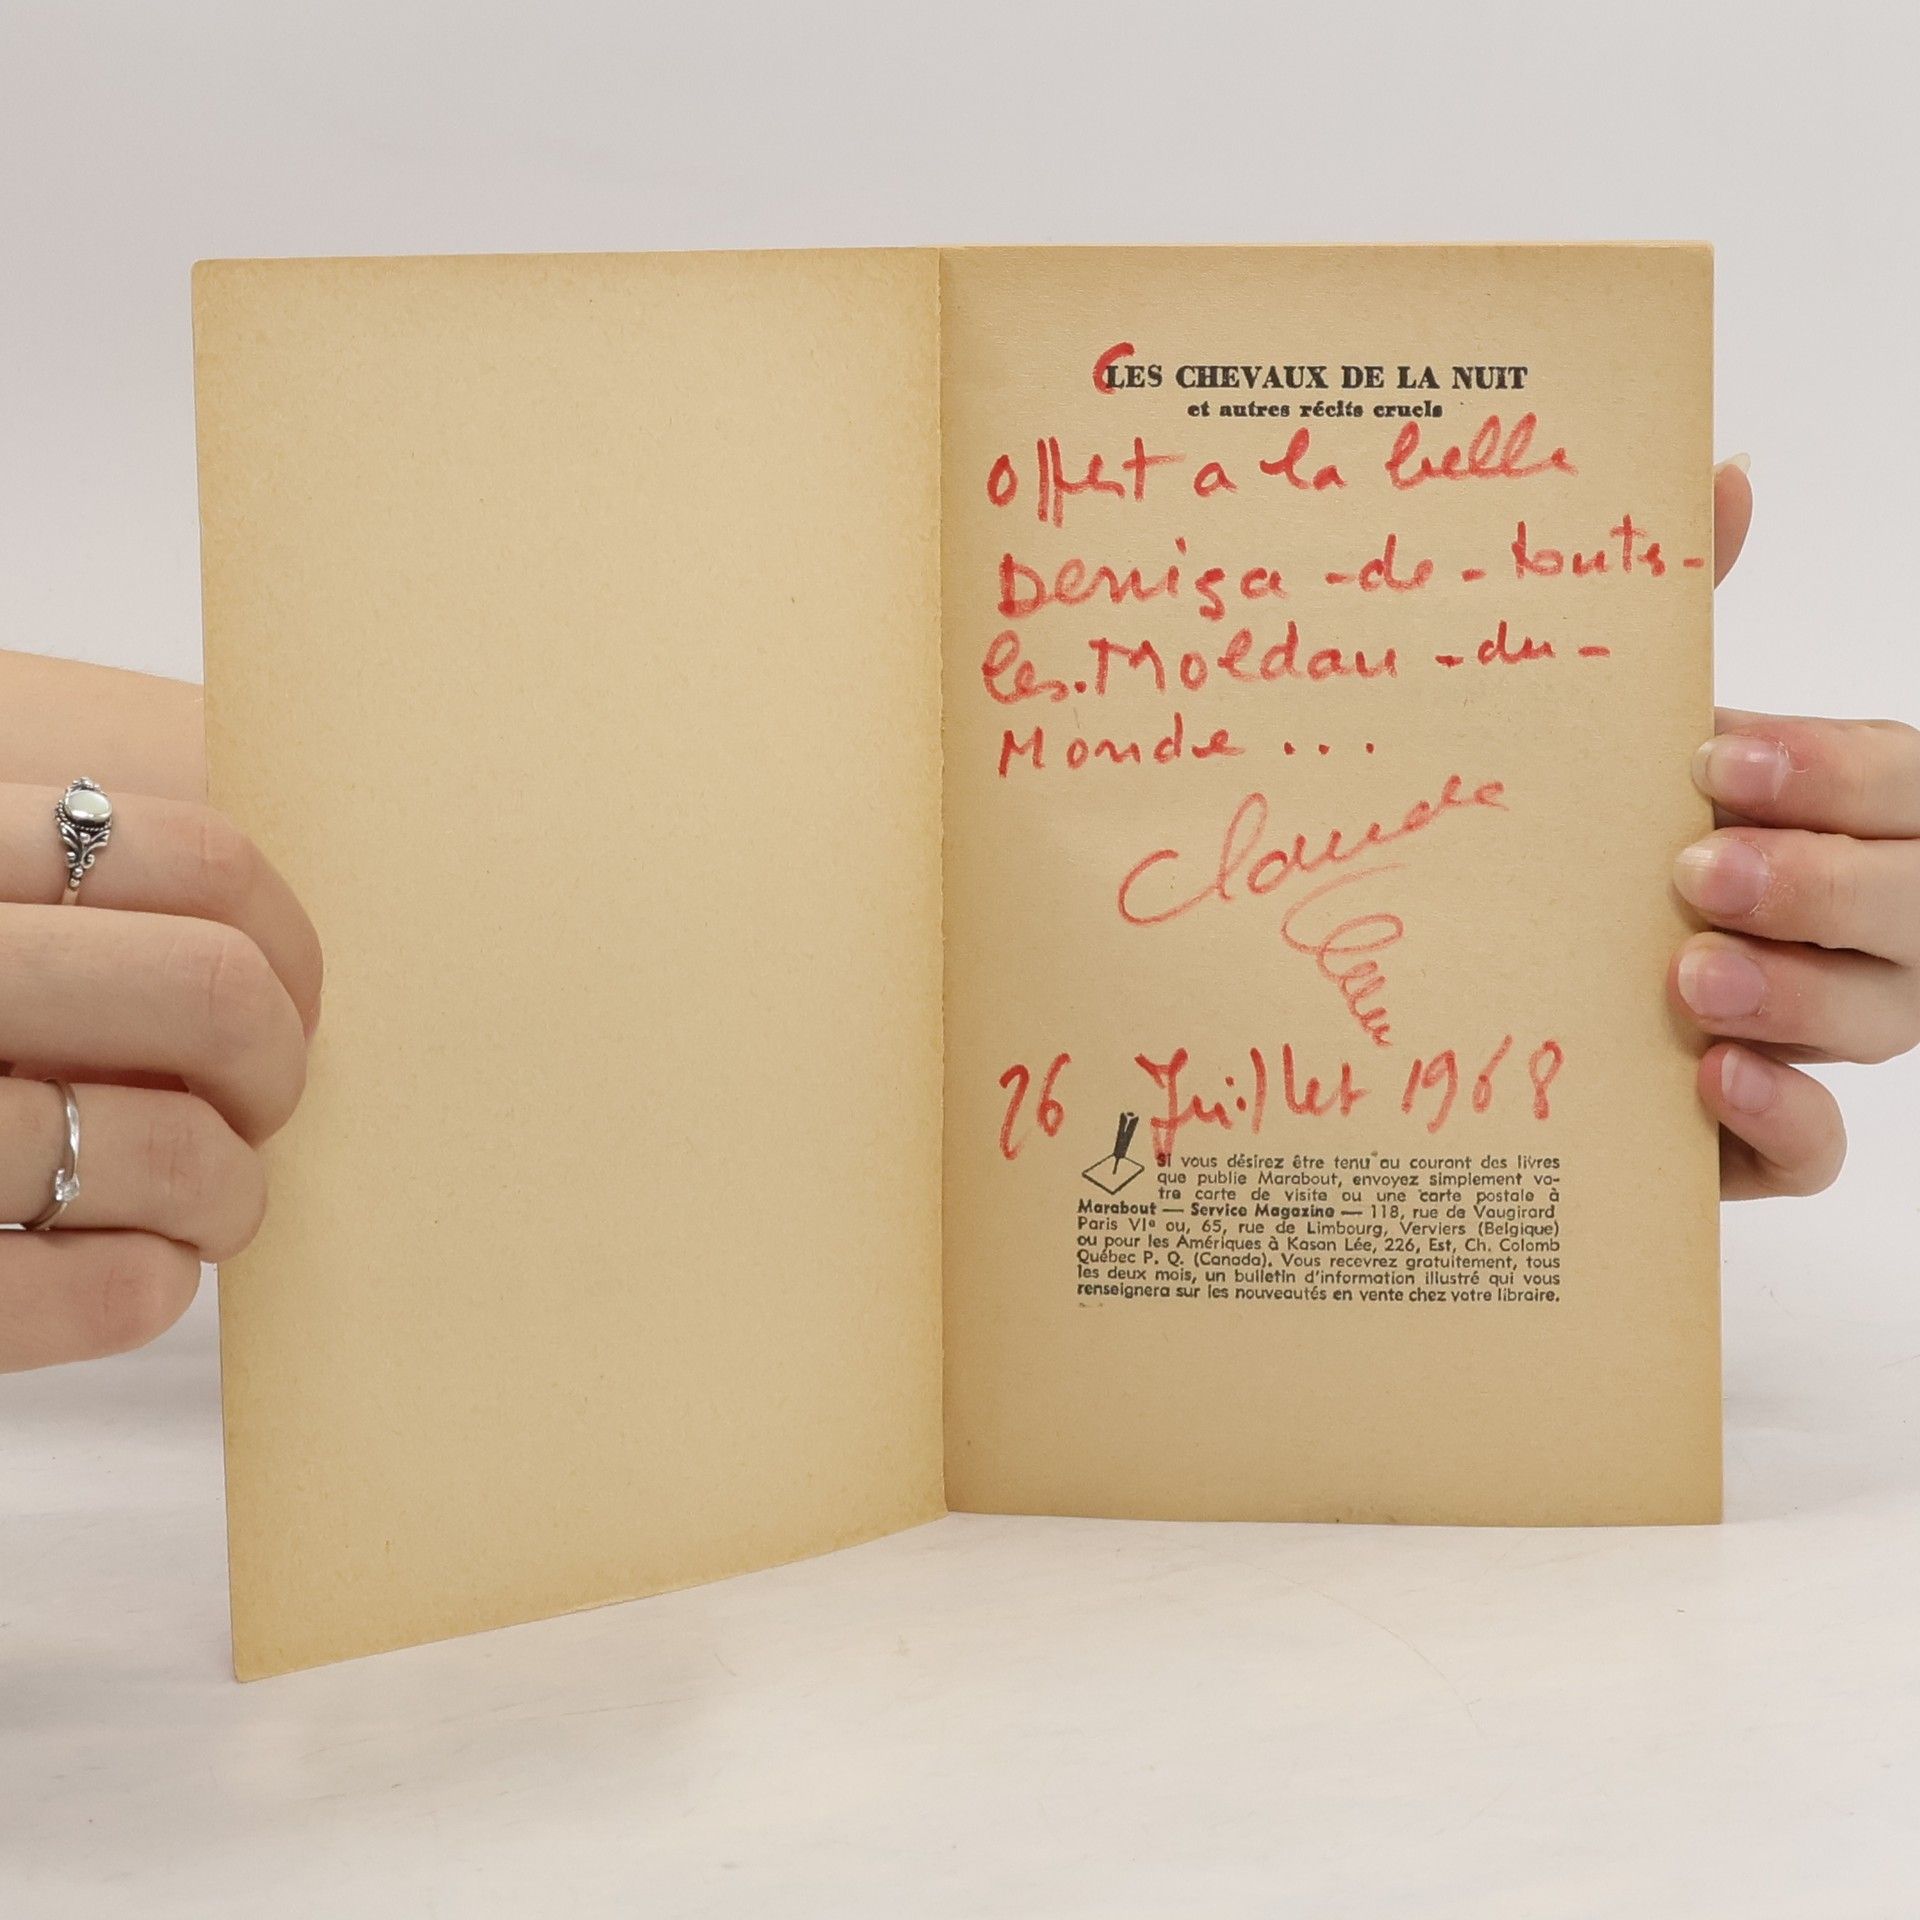 LES CHEVAUX DE LA NUIT
et autres récits cruels
Offert a la belle
Denisa - de - toutes -
les. Moldau - du -
Monde ...
Claude
26 Juillet 1968
Si vous désirez être tenu au courant des livres
que publie Marabout, envoyez simplement vo-
tre carte de visite ou une carte postale à
Marabout — Service Magazine — 118, rue de Vaugirard
Paris VIe ou, 65, rue de Limbourg, Verviers (Belgique)
ou pour les Amériques à Kasan Lée, 226, Est, Ch. Colomb
Québec P. Q. (Canada). Vous recevrez gratuitement, tous
les deux mois, un bulletin d'information illustré qui vous
renseignera sur les nouveautés en vente chez votre libraire.